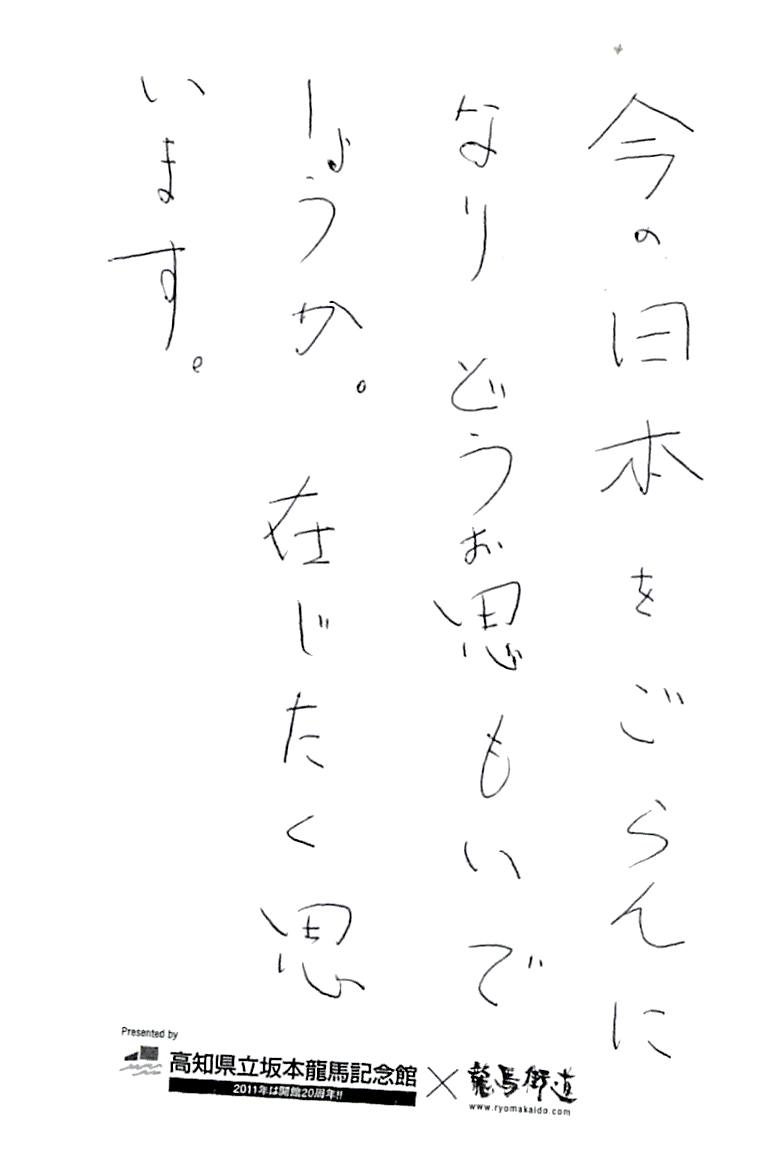 今の日本をごらんに
なり どうお思もいで
しょうか。 在じたく思
います。
Presented by
高知県立坂本龍馬記念館
2011年は開館20周年!!
×
龍馬街道
www.ryomakaido.com